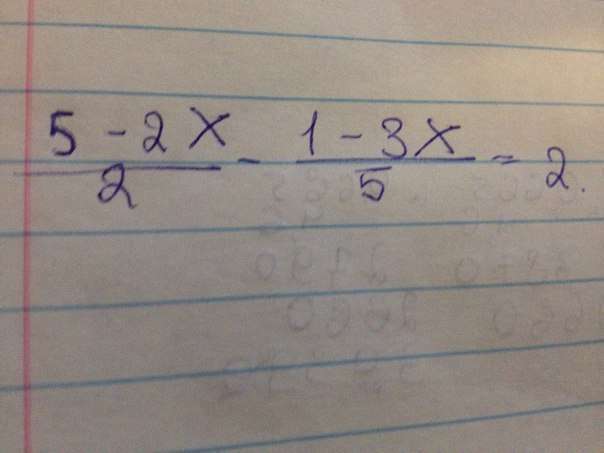 (5 - 2x)/2 - (1 - 3x)/5 = 2.